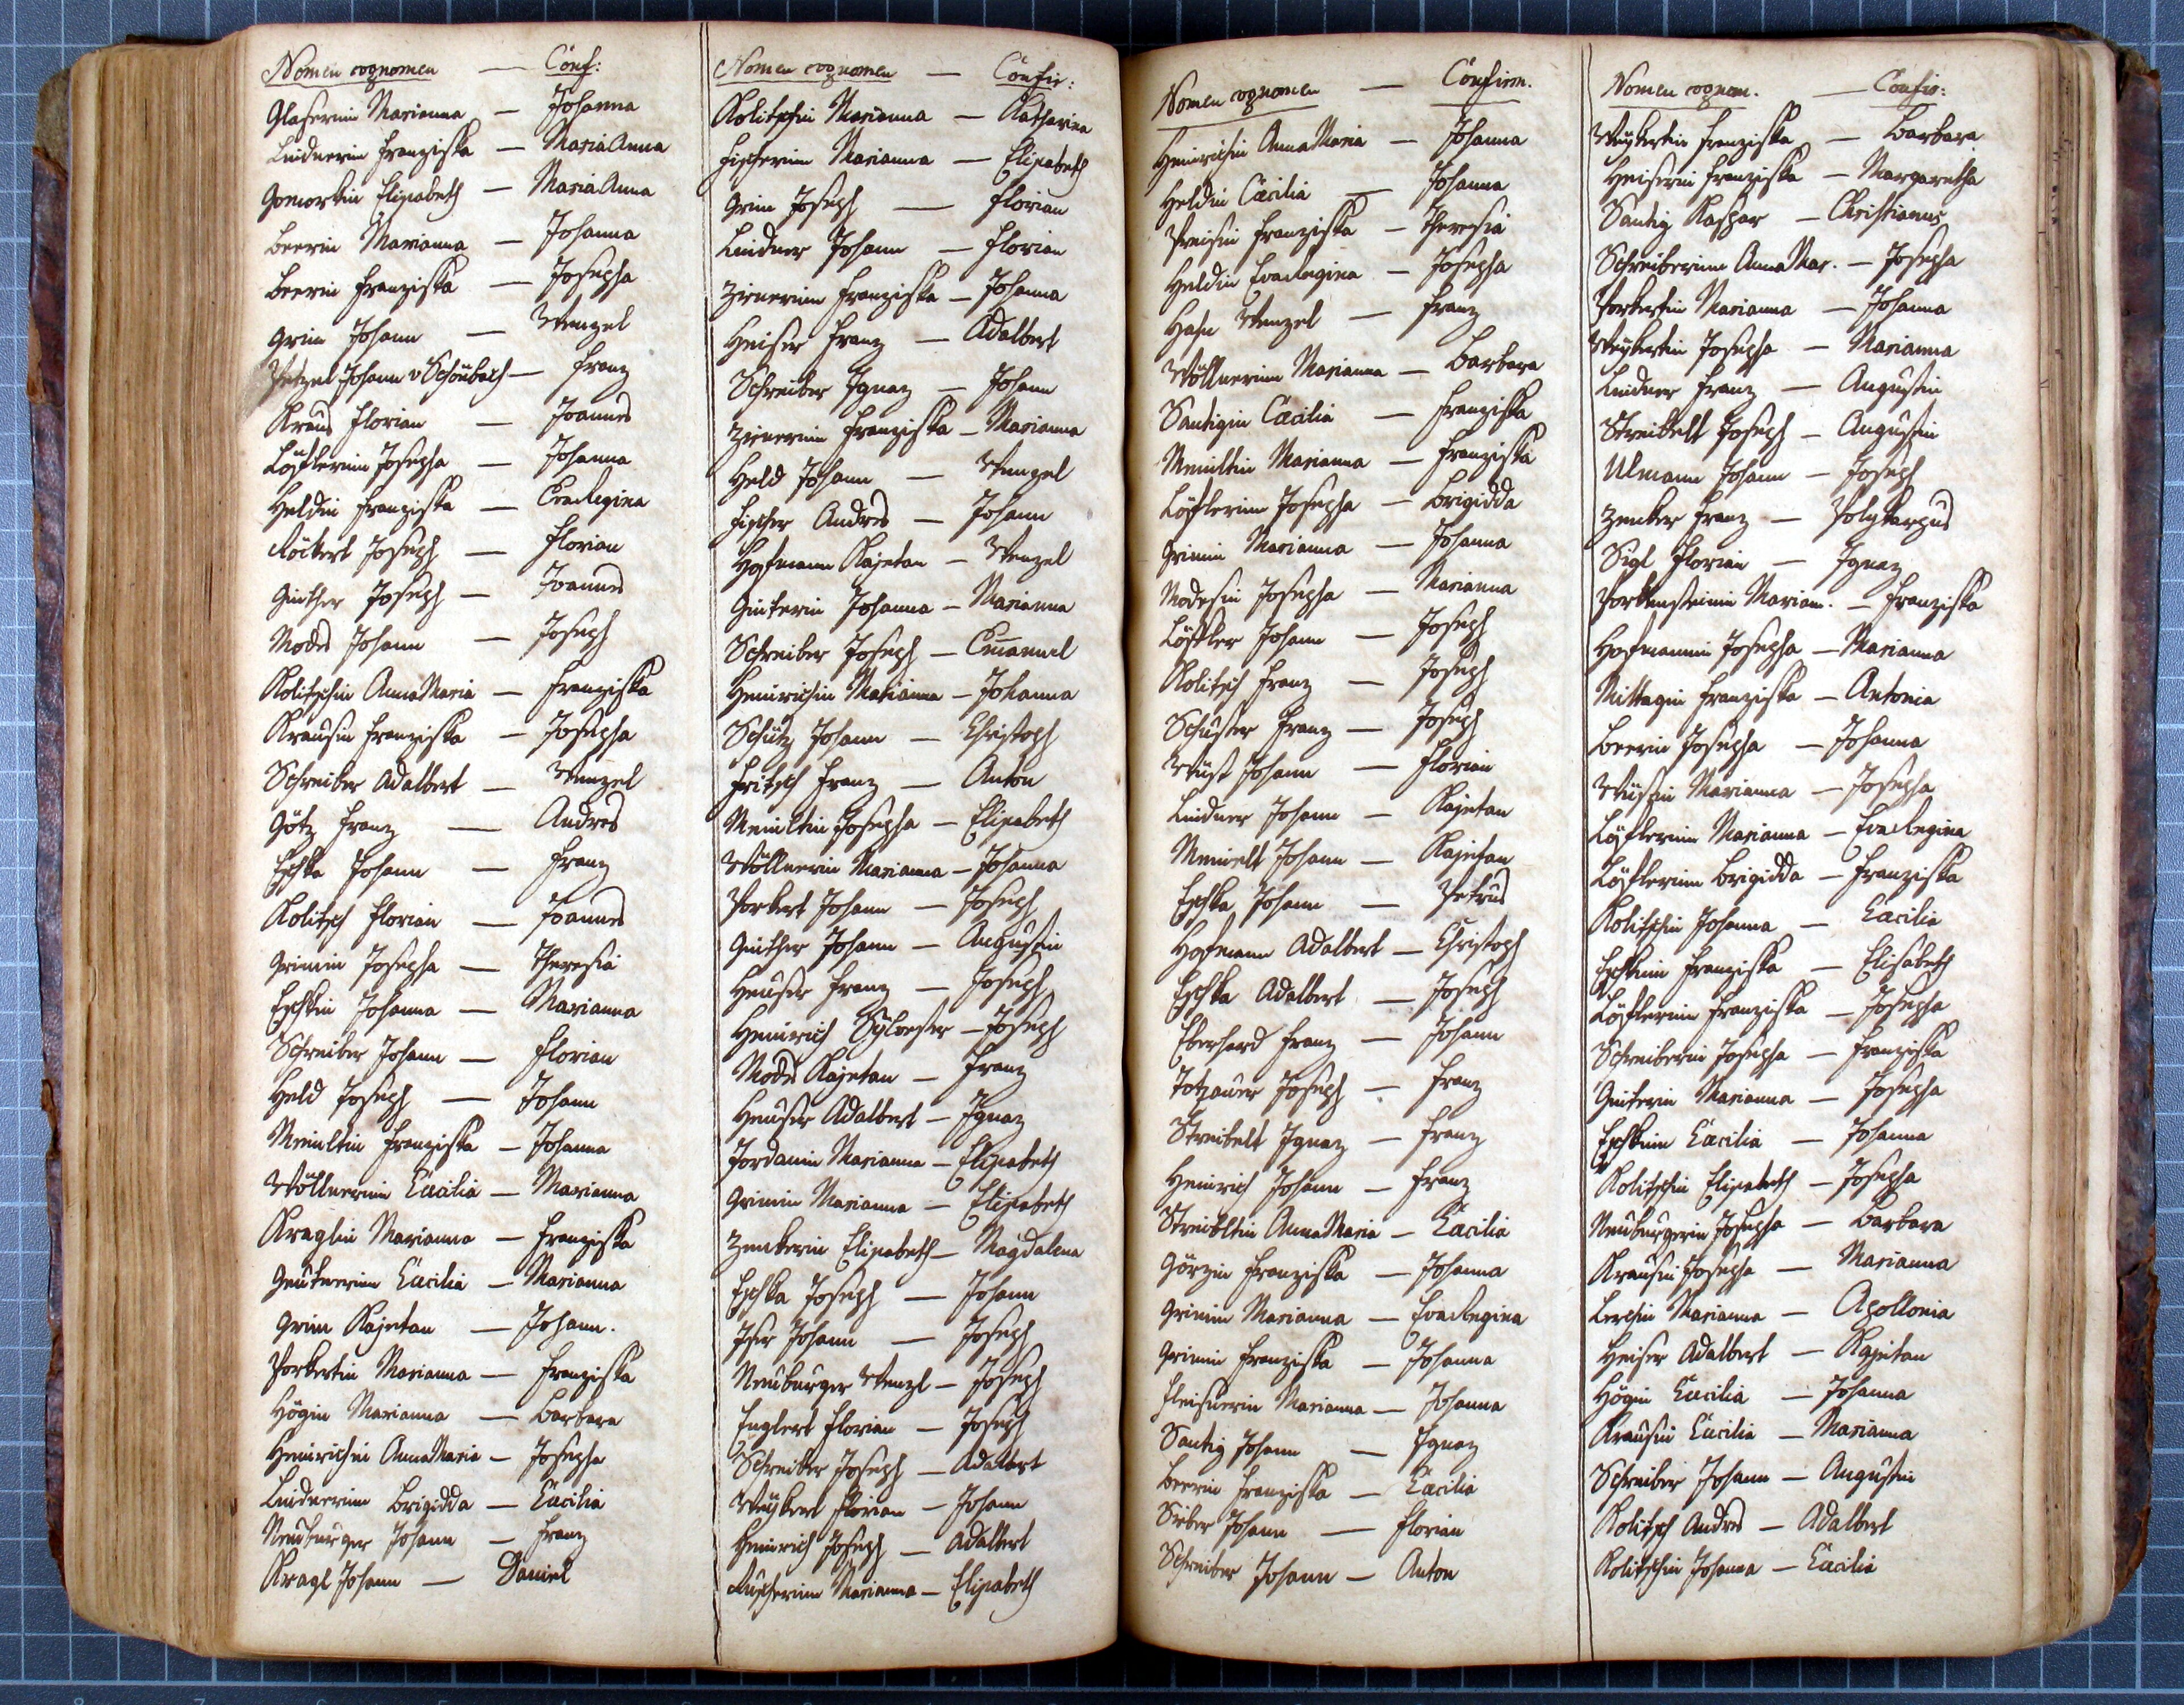 Nomen cognomen — Conf:
Glaserin Marianna — Johanna
Lindnerin Franziska — Maria Anna
Elisabeth — Maria Anna
Beerin Marianna — Johanna
Beerin Franziska — Josepha
Grim Johann — Wenzel
Petzel Johann v Schönbach — Franz
Kraus Florian — Joannes
Löflerinn Josepha — Johanna
Heldin Franziska — Eva Regina
Röckert Joseph — Florian
Ginther Joseph — Joannes
Modes Johann — Joseph
Kolitschin Anna Maria — Franziska
Krausin Franziska — Josepha
Schreiber Adalbert — Wenzel
Götz Franz — Andres
Eschka Johann — Franz
Kolitsch Florian — Joannes
Grimin Josepha — Theresia
Eschkin Johanna — Marianna
Schreiber Johann — Florian
Held Joseph — Johann
Meinltin Franziska — Johanna
Wöllnerinn Cäcilia — Marianna
Kraglin Marianna — Franziska
Cäcilia — Marianna
Grim Kajetan — Johann.
Porkertin Marianna — Franziska
Högin Marianna — Barbara
Heinrichin Anna Maria — Josepha
Lindnerinn Brigidda — Cäcilia
Neuburger Johann — Franz
Kragl Johann — Daniel
Nomen cognomen — Confir:
Kolitschin Marianna — Katharina
Fischerinn Marianna — Elisabeth
Grim Joseph — Florian
Lindner Johann — Florian
Zirnerinn Franziska — Johanna
Heiser Franz — Adalbert
Schreiber Ignaz — Johann
Zirnerinn Franziska — Marianna
Held Johann — Wenzel
Fischer Andres — Johann
Hofmann Kajetan — Wenzel
Ginterin Johanna — Marianna
Schreiber Joseph — Emanuel
Heinrichin Marianna — Johanna
Schütz Johann — Christoph
Fritsch Franz — Anton
Meinltin Josepha — Elisabeth
Wöllnerin Marianna — Johanna
Porkert Johann — Joseph
Ginther Johann — Augustin
Heuser Franz — Joseph
Heinrich Sylvester — Joseph
Modes Kajetan — Franz
Heuser Adalbert — Ignaz
Jordanin Marianna — Elisabeth
Grimin Marianna — Elisabeth
Zenkerin Elisabeth — Magdalena
Eschka Joseph — Johann
Iser Johann — Joseph
Neuburger Wenzl — Joseph
Englert Florian — Joseph
Schreiber Joseph — Adalbert
Weykert Florian — Johann
Heinrich Joseph — Adalbert
Marianna — Elisabeth
Nomen cognomen — Confirm.
Heinrichin Anna Maria — Johanna
Heldin Cäcilia — Johanna
Preisin Franziska — Theresia
Heldin Eva Regina — Josepha
Hahn Wenzel — Franz
Wöllnerinn Marianna — Barbara
Santigin Cäcilia — Franziska
Meinltin Marianna — Franziska
Löflerinn Josepha — Brigidda
Grimin Marianna — Johanna
Modesin Josepha — Marianna
Löffler Johann — Joseph
Kolitsch Franz — Joseph
Schuster Franz — Joseph
Wüst Johann — Florian
Lindner Johann — Kajetan
Meinelt Johann — Kajetan
Eschka Johann — Petrus
Hofmann Adalbert — Christoph
Eschka Adalbert — Joseph
Eberhard Franz — Johann
Totzauer Joseph — Franz
Streibelt Ignaz — Franz
Heinrich Johann — Franz
Streibltin Anna Maria — Cäcilia
Görzin Franziska — Johanna
Grimin Marianna — Eva Regina
Grimin Franziska — Johanna
Marianna — Johanna
Santig Johann — Ignaz
Beerin Franziska — Cäcilia
Sieber Johann — Florian
Schreiber Johann — Anton
Nomen cognom. — Confir:
Weykertin Franziska — Barbara
Heiserin Franziska — Margaretha
Santig Kaspar — Christianus
Schreiberinn Anna Mar. — Josepha
Porkertin Marianna — Johanna
Weykertin Josepha — Marianna
Lindner Franz — Augustin
Streibelt Joseph — Augustin
Ulmann Johann — Joseph
Zenker Franz — Polykarpus
Sigl Florian — Ignaz
Mariann. — Franziska
Hofmannin Josepha — Marianna
Mittagin Franziska — Antonia
Beerin Josepha — Johanna
Wüstin Marianna — Josepha
Löflerinn Marianna — Eva Regina
Löflerinn Brigidda — Franziska
Kolitschin Johanna — Cäcilia
Eschkinn Franziska — Elisabeth
Löflerinn Franziska — Josepha
Schreiberin Josepha — Franziska
Ginterin Marianna — Josepha
Eschkinn Cäcilia — Johanna
Kolitschin Elisabeth — Josepha
Neuburgerin Josepha — Barbara
Krausin Josepha — Marianna
Lerchin Marianna — Apollonia
Heiser Adalbert — Kajetan
Högin Cäcilia — Johanna
Krausin Cäcilia — Marianna
Schreiber Johann — Augustin
Kolitsch Andres — Adalbert
Kolitschin Johanna — Cäcilia